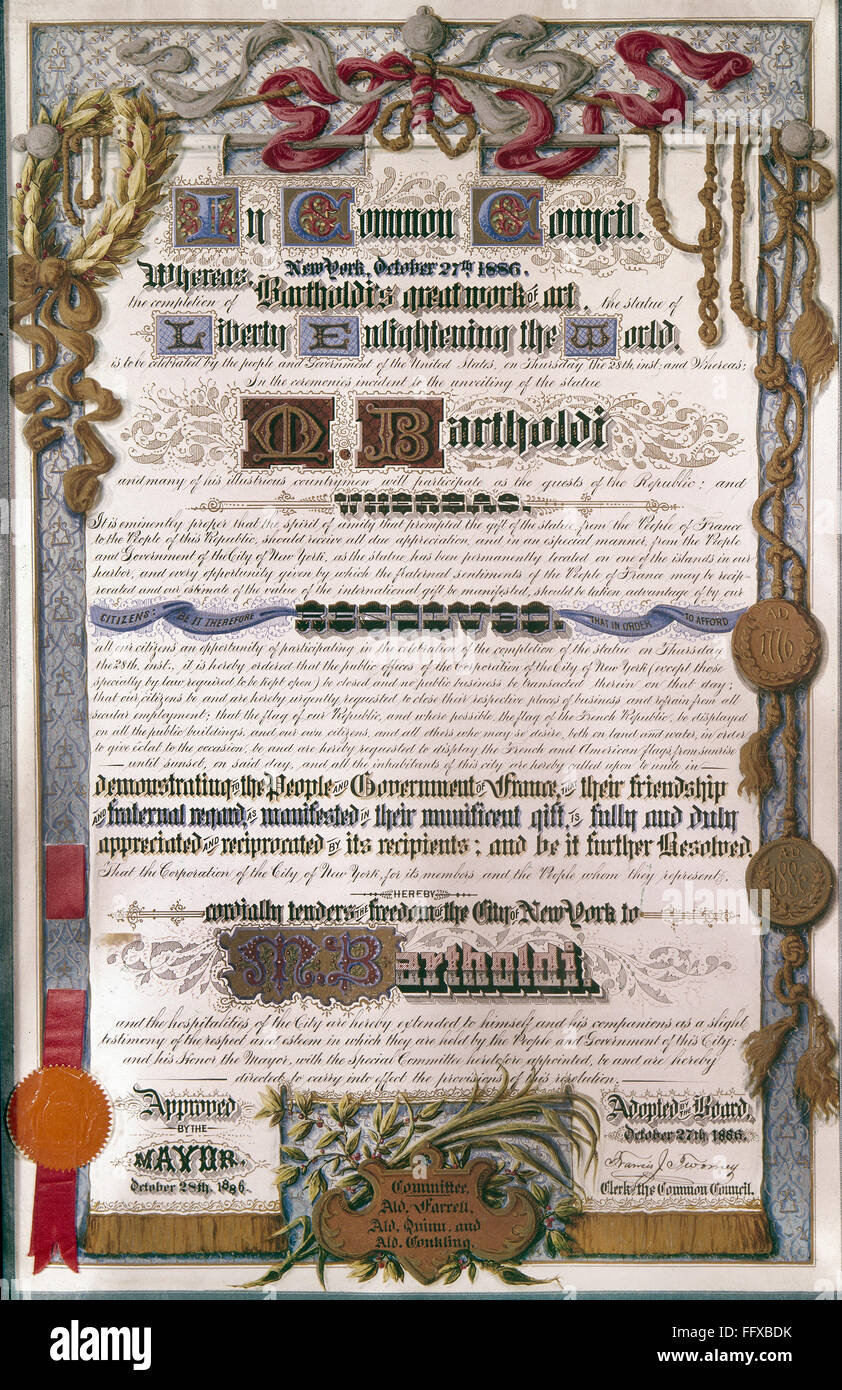 In Common Council.
New York, October 27th 1886.
Whereas, Bartholdi's great work of art, the statue of
the completion of
Liberty Enlightening the World,
is to be celebrated by the people and Government of the United States, on Thursday the 28th, inst: and Whereas;
In the ceremonies incident to the unveiling of the statue
M. Bartholdi
and many of his illustrious countrymen will participate as the guests of the Republic; and
WHEREAS,
It is eminently proper that the spirit of amity that prompted the gift of the statue from the People of France
to the People of this Republic, should receive all due appreciation, and in an especial manner, from the People
and Government of the City of New York, as the statue has been permanently located on one of the islands in our
harbor, and every opportunity given by which the fraternal sentiments of the People of France may be recip-
rocated and our estimate of the value of the international gift be manifested, should be taken advantage of by our
CITIZENS: BE IT THEREFORE RESOLVED, THAT IN ORDER TO AFFORD
all our citizens an opportunity of participating in the celebration of the completion of the statue on Thursday
the 28th. inst., it is hereby ordered that the public offices of the Corporation of the City of New York (except those
specially by law required to be kept open) be closed and no public business be transacted therein on that day;
that our citizens be and are hereby urgently requested to close their respective places of business and refrain from all
secular employment; that the flag of our Republic, and where possible the flag of the French Republic, be displayed
on all the public buildings, and our own citizens, and all others who may so desire, both on land and water, in order
to give eclat to the occasion, be and are hereby requested to display the French and American flags, from sunrise
until sunset, on said day, and all the inhabitants of this city are hereby called upon to unite in
demonstrating to the People and Government of France, that their friendship
and fraternal regard, as manifested in their munificent gift, is fully and duly
appreciated and reciprocated by its recipients; and be it further Resolved,
That the Corporation of the City of New York, for its members and the People whom they represent,
HEREBY
cordially tenders the freedom of the City of New York to
M. Bartholdi,
and the hospitalities of the City are hereby extended to himself and his companions as a slight
testimony of the respect and esteem in which they are held by the People and Government of this City;
and his Honor, the Mayor, with the Special Committee heretofore appointed, be and are hereby
directed to carry into effect the provisions of this resolution.
Approved
BY THE
MAYOR.
October 28th. 1886.
Adopted by the Board,
October 27th. 1886.
Francis J. Twomey
Clerk of the Common Council.
Committee,
Ald. Farrell,
Ald. Quinn, and
Ald. Conkling.
AD
1776
AD
alamy
Image ID: FFXBDK
www.alamy.com